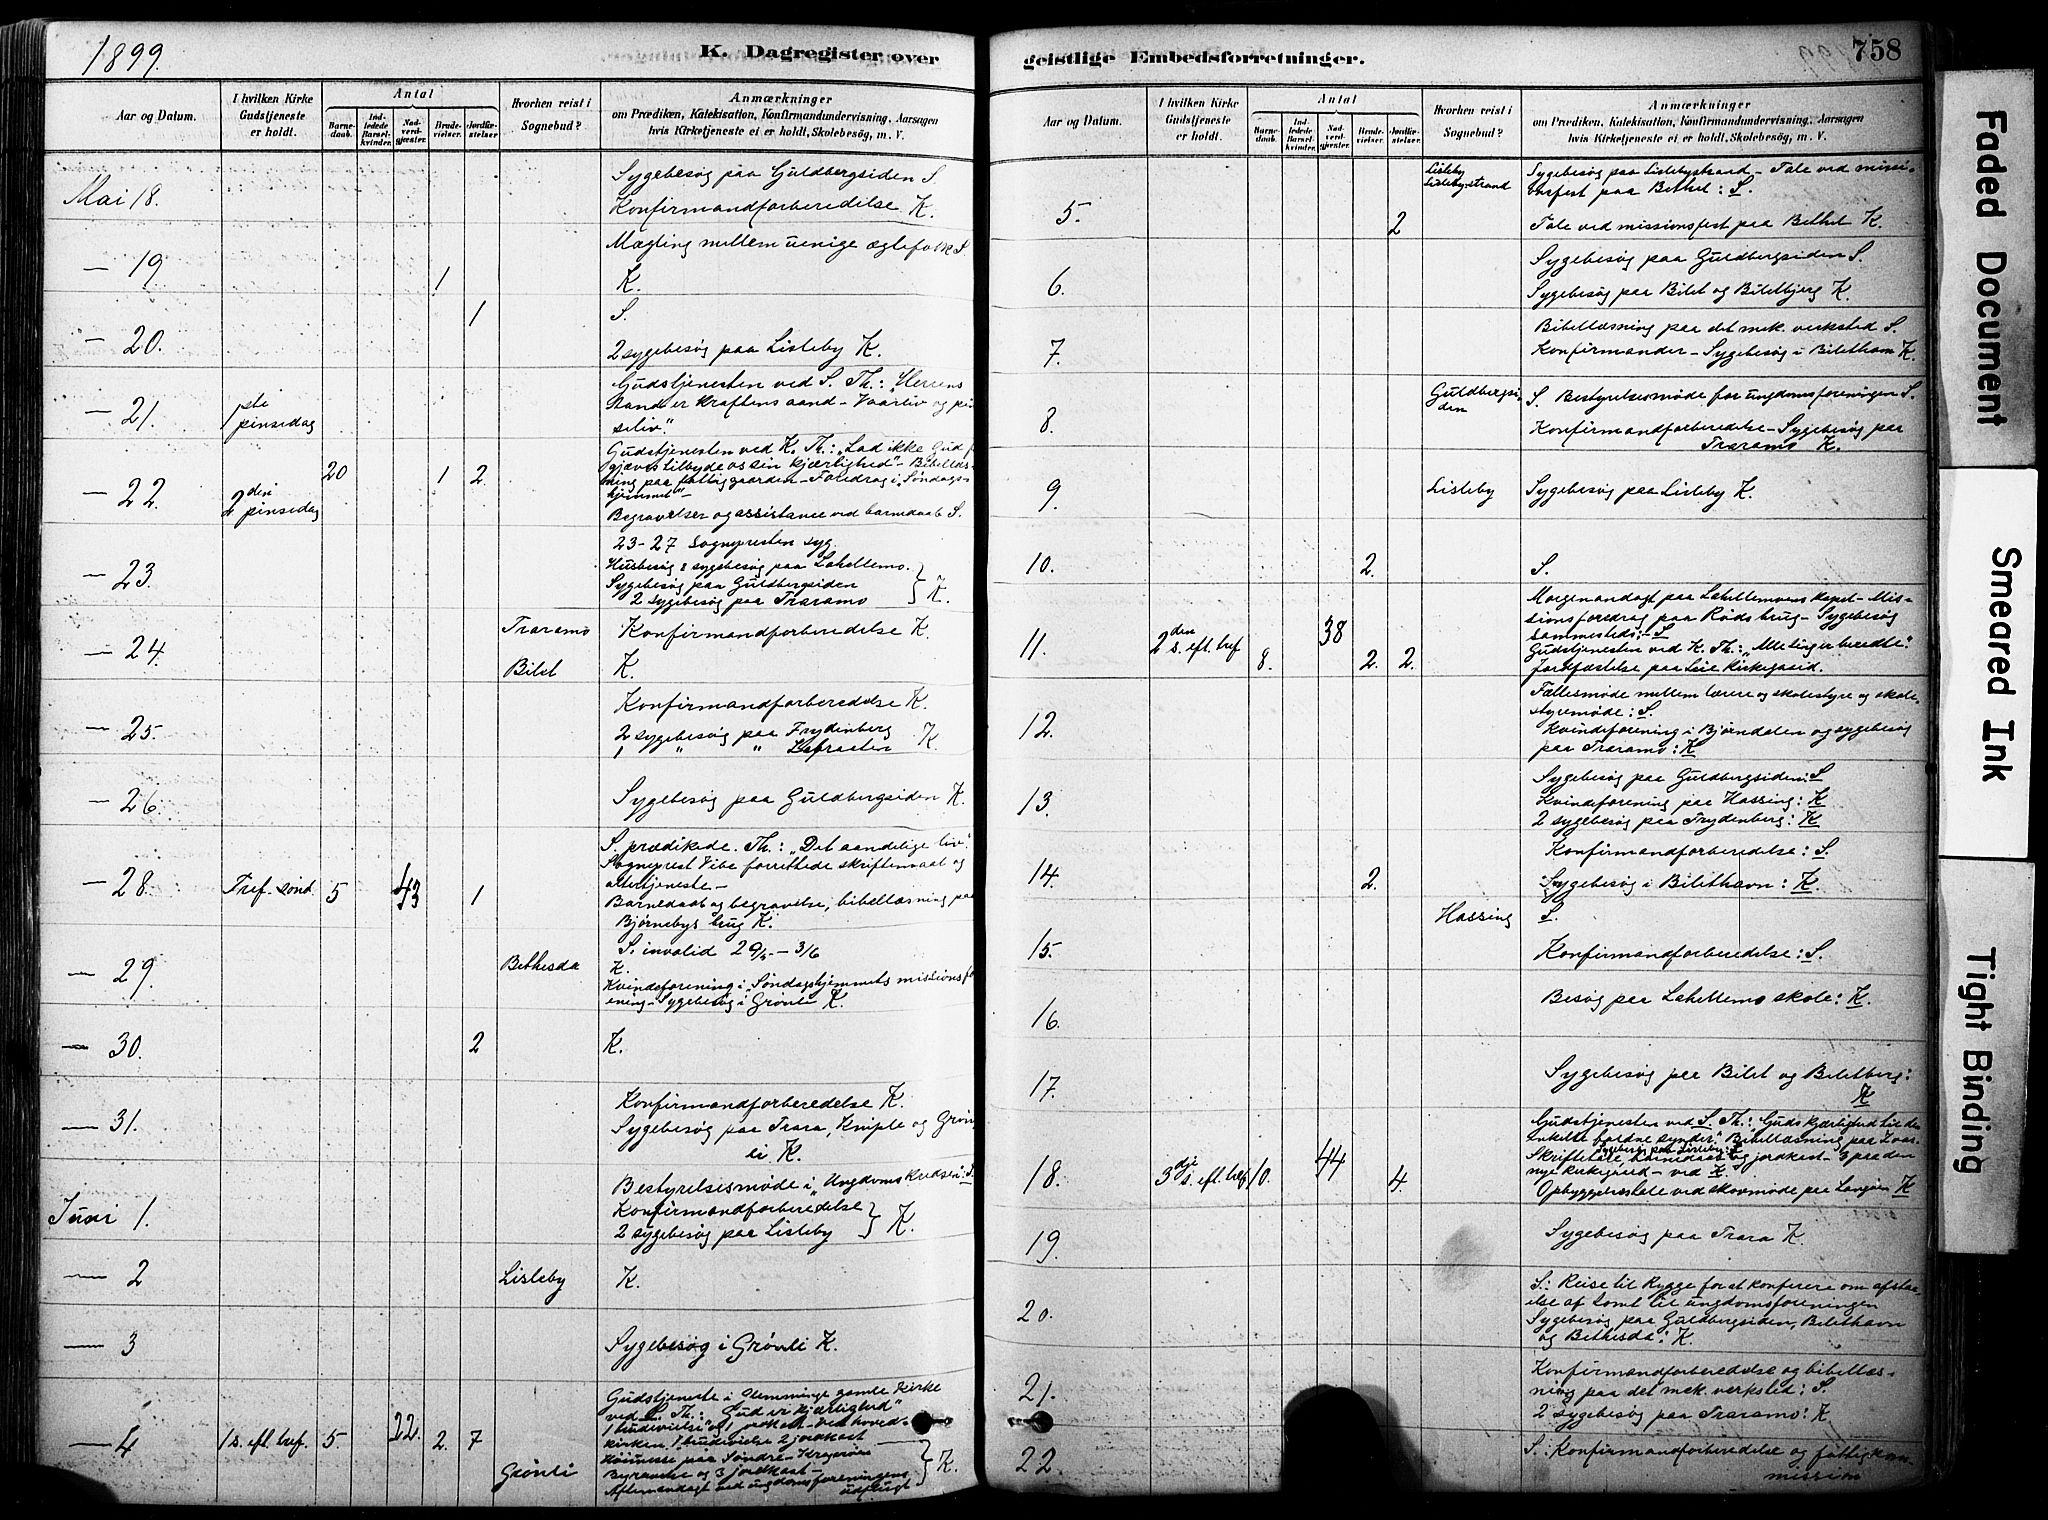 1899.
K. Dagregister over
Aar og Datum.
I hvilken Kirke Gudstjeneste er holdt.
Antal
Barnedaab.
Indledede Barselkvinder.
Nadverdgjæster.
Brudevielser.
Jordfæstelser.
Hvorhen reist i Sognebud?
Anmærkninger
om Prædiken, Katekisation, Konfirmandundervisning, Aarsagen
hvis Kirketjeneste ei er holdt, Skolebesög, m. V.
Mai 18.
Sygebesøg paa Guldbergsiden S.
Konfirmandforberedelse K.
— 19
1
Mægling mellem uenige ægtefolk S.
K.
— 20.
1
S.
2 sygebesøg paa Lisleby K.
— 21.
1ste pinsedag
Gudstjenesten ved S. Th.: "Herrens
Aand er kraftens aand – Vaarliv og
— 22.
2den pinsedag
20
1
2.
Gudstjenesten ved K. Th.: "Lad ikke Gud
gjæves tilbyde os sin kjærlighed" – Bibellæs-
ning paa fattiggaarden – Foredrag i "Søndags-
hjemmet" –
Begravelser og assistance ved barnedaab S.
23–27 Sognepresten syg.
— 23.
Husbesøg & sygebesøg paa Lahellemo.
Sygebesøg paa Guldbergsiden
2 sygebesøg paa Traramo
K.
— 24.
Traramo
Konfirmandforberedelse K.
Bilet
K.
— 25.
Konfirmandforberedelse K.
2 sygebesøg paa Frydenberg
1 " "
K
— 26
Sygebesøg paa Guldbergsiden K.
— 28.
Tref. sønd.
5
43
1
S. prædikede. Th.: "Det aandelige liv".
Sogneprest Vibe forrettede skriftemaal og
altertjeneste –
Barnedaab og begravelse, bibellæsning paa
Bjørnebys brug K.
— 29.
Bethesda
S. invalid 29/5 – 3/6
K.
Kvindeforening i "Søndagshjemmets missionsfo
ening – Sygebesøg i Grønli K.
— 30.
2
K.
— 31.
Konfirmandforberedelse K.
Sygebesøg paa Trara, Kniple og Grøn
li K.
Juni 1.
Bestyrelsesmøde i "Ungdomskredsen": S.
Konfirmandforberedelse
2 sygebesøg paa Lisleby
K.
— 2
Lisleby
K.
— 3
Sygebesøg i Grønli K.
— 4
1 s. eft. tref.
5.
22.
2.
7
Grønli
Gudstjeneste i Glemminge gamle Kirke
ved S. Th.: "Gud er kjærlighed"
1 brudevielse og 1 jordkast – Ved hoved-
kirken 1 brudevielse 2 jordkast
Høimesse paa Søndre – Kragerøen
Begravelse og 3 jordkast –
Aftenandagt ved ungdomsforeningens
udflugt
K.
geistlige Embedsforretninger.
758
Aar og Datum.
I hvilken Kirke Gudstjeneste er holdt.
Antal
Barnedaab.
Indledede Barselkvinder.
Nadverdgjæster.
Brudevielser.
Jordfæstelser.
Hvorhen reist i Sognebud?
Anmærkninger
om Prædiken, Katekisation, Konfirmandundervisning, Aarsagen
hvis Kirketjeneste ei er holdt, Skolebesög, m. V.
5.
2
Lisleby
Lislebystrand
Sygebesøg paa Lislebystrand – Tale ved missi-
onsfest paa Bethel: S.
Tale ved missionsfest paa Bethel K.
6.
Sygebesøg paa Guldbergsiden S.
Sygebesøg paa Bilet og Biletbjerg K.
7.
Bibellæsning paa det mek. verksted S.
Konfirmander – Sygebesøg i Bilethavn K.
8.
Guldbergsi-
den
S. Bestyrelsesmøde for ungdomsforeningen S.
Konfirmandforberedelse – Sygebesøg paa
Traramo K.
9.
Lisleby
Sygebesøg paa Lisleby K.
10.
2.
S.
11.
2den s. eft. tref
8.
38
2.
2.
Morgenandagt paa Lahellemoens kapel – Mis-
sionsforedrag paa Røds brug – Sygebesøg
sammesteds: – S
Gudstjenesten ved K. Th.: "Alle ting er beredte".
Jordfæstelse paa Leie kirkegaard.
12.
Fællesmøde mellem lærere og skolestyre og skole-
styremøde: S.
Kvindeforening i Bjørndalen og sygebesøg
paa Traramo: K
13.
Sygebesøg paa Guldbergsiden: S
Kvindeforening paa Hassing: K
2 sygebesøg paa Frydenberg: K
14.
2.
Konfirmandforberedelse: S.
Sygebesøg i Bilethavn: K.
15.
Hassing
S.
Konfirmandforberedelse: S.
16.
Besøg paa Lahellemo skole: K.
17.
Sygebesøg paa Bilet og Biletberg:
K
18.
3dje s. eft. tref
10.
44
4.
Gudstjenesten ved S. Th.: "Guds kjærlighed til den
enkelte fortabte synder". Bibellæsning paa
Sygebesøg paa Lisleby: S
Skriftetale, barnedaab og jordkast – 3 paa den
nye kirkegaard – ved K
Opbyggelsestale ved skovmøde paa K
19.
Sygebesøg paa Trara K.
20.
S: Reise til Rygge for at konferere om afstaa-
else af tomt til ungdomsforeningen
Sygebesøg paa Guldbergsiden, Bilethavn
og Bethesda: K.
21.
Konfirmandforberedelse og bibellæs-
ning paa det mek. verksted: S.
2 sygebesøg paa Traramo: K.
22
S.: Konfirmandforberedelse og fattigkom-
mission
Faded Document
Smeared Ink
Tight Binding